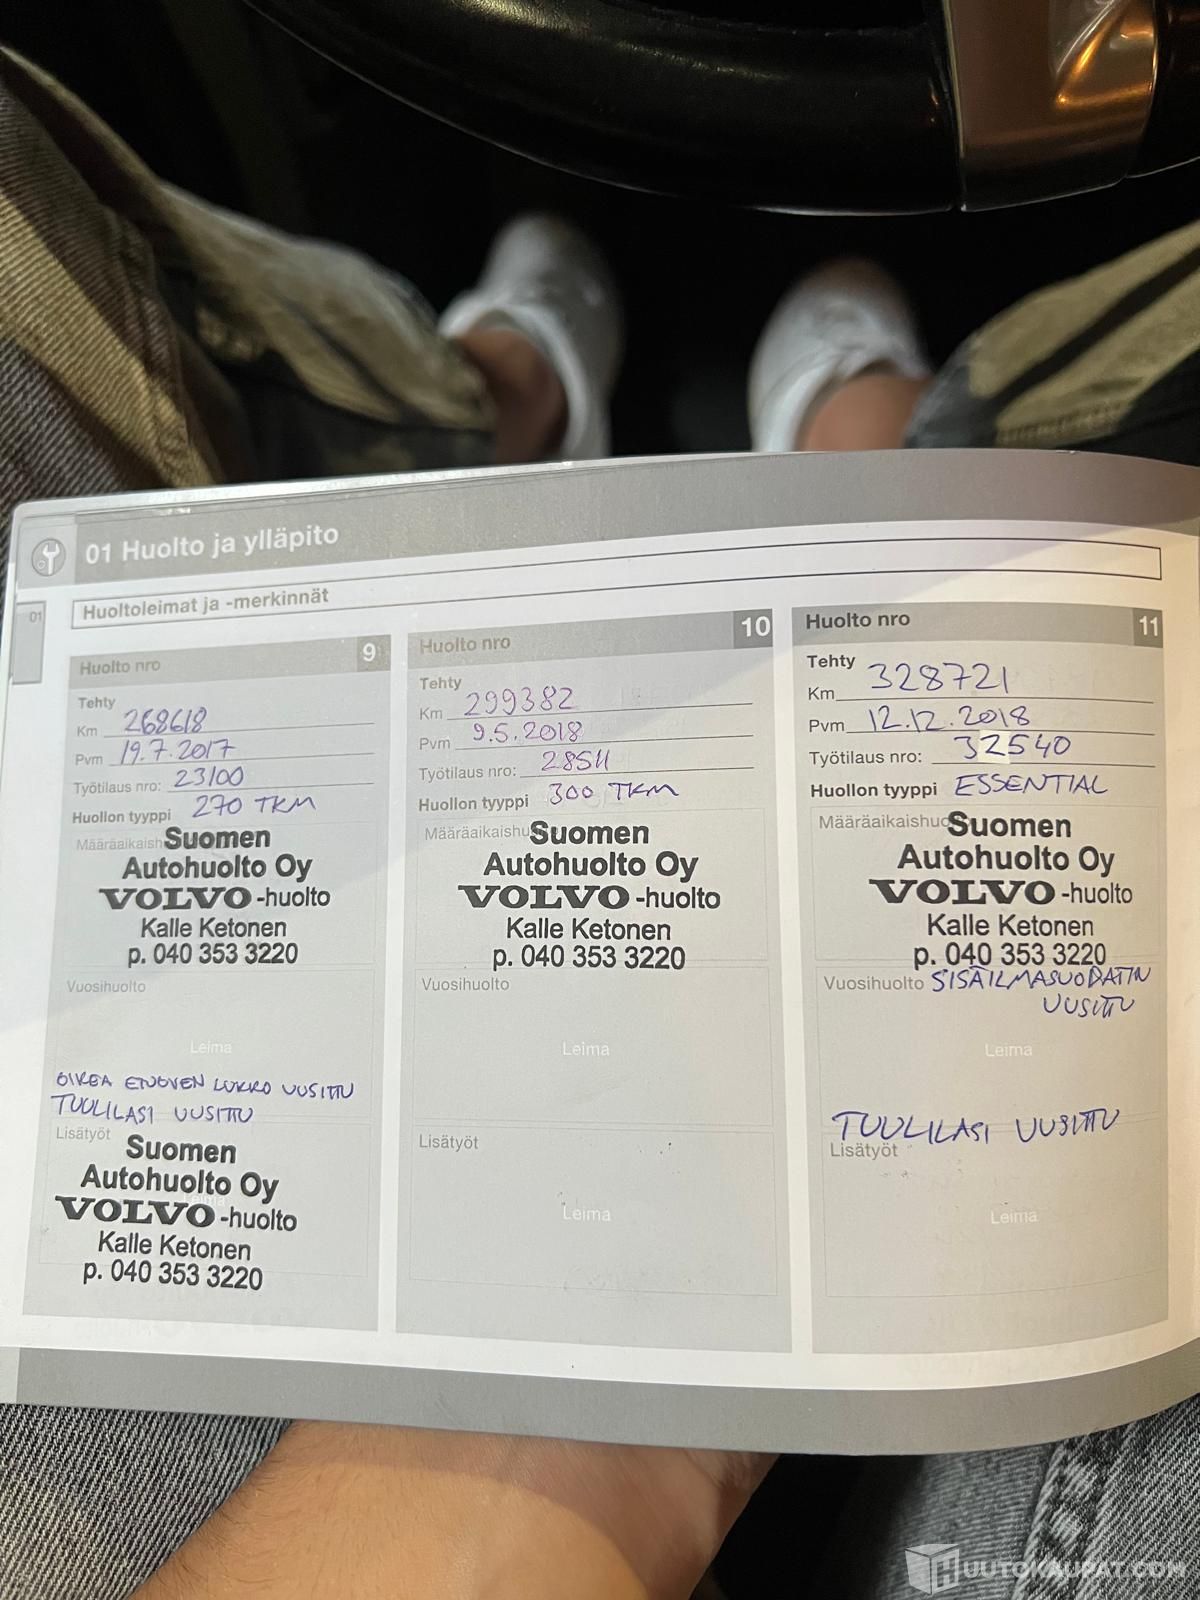 01 Huolto ja ylläpito
01
Huoltoleimat ja -merkinnät
Huolto nro 9
Tehty
Km 268618
Pvm 19.7.2017
Työtilaus nro: 23100
Huollon tyyppi 270 TKM
Suomen
Autohuolto Oy
VOLVO-huolto
Kalle Ketonen
p. 040 353 3220
Vuosihuolto
Leima
OIKEA ETUOVEN LUKKO UUSITTU
TUULILASI UUSITTU
Lisätyöt
Suomen
Autohuolto Oy
Leima
VOLVO-huolto
Kalle Ketonen
p. 040 353 3220
Huolto nro 10
Tehty
Km 299382
Pvm 9.5.2018
Työtilaus nro: 28511
Huollon tyyppi 300 TKM
Suomen
Autohuolto Oy
VOLVO-huolto
Kalle Ketonen
p. 040 353 3220
Vuosihuolto
Leima
Lisätyöt
Leima
Huolto nro 11
Tehty
Km 328721
Pvm 12.12.2018
Työtilaus nro: 32540
Huollon tyyppi ESSENTIAL
Suomen
Autohuolto Oy
VOLVO-huolto
Kalle Ketonen
p. 040 353 3220
Vuosihuolto SISÄILMASUODATIN
UUSITTU
Leima
TUULILASI UUSITTU
Lisätyöt
Leima
HUUTOKAUPAT.COM